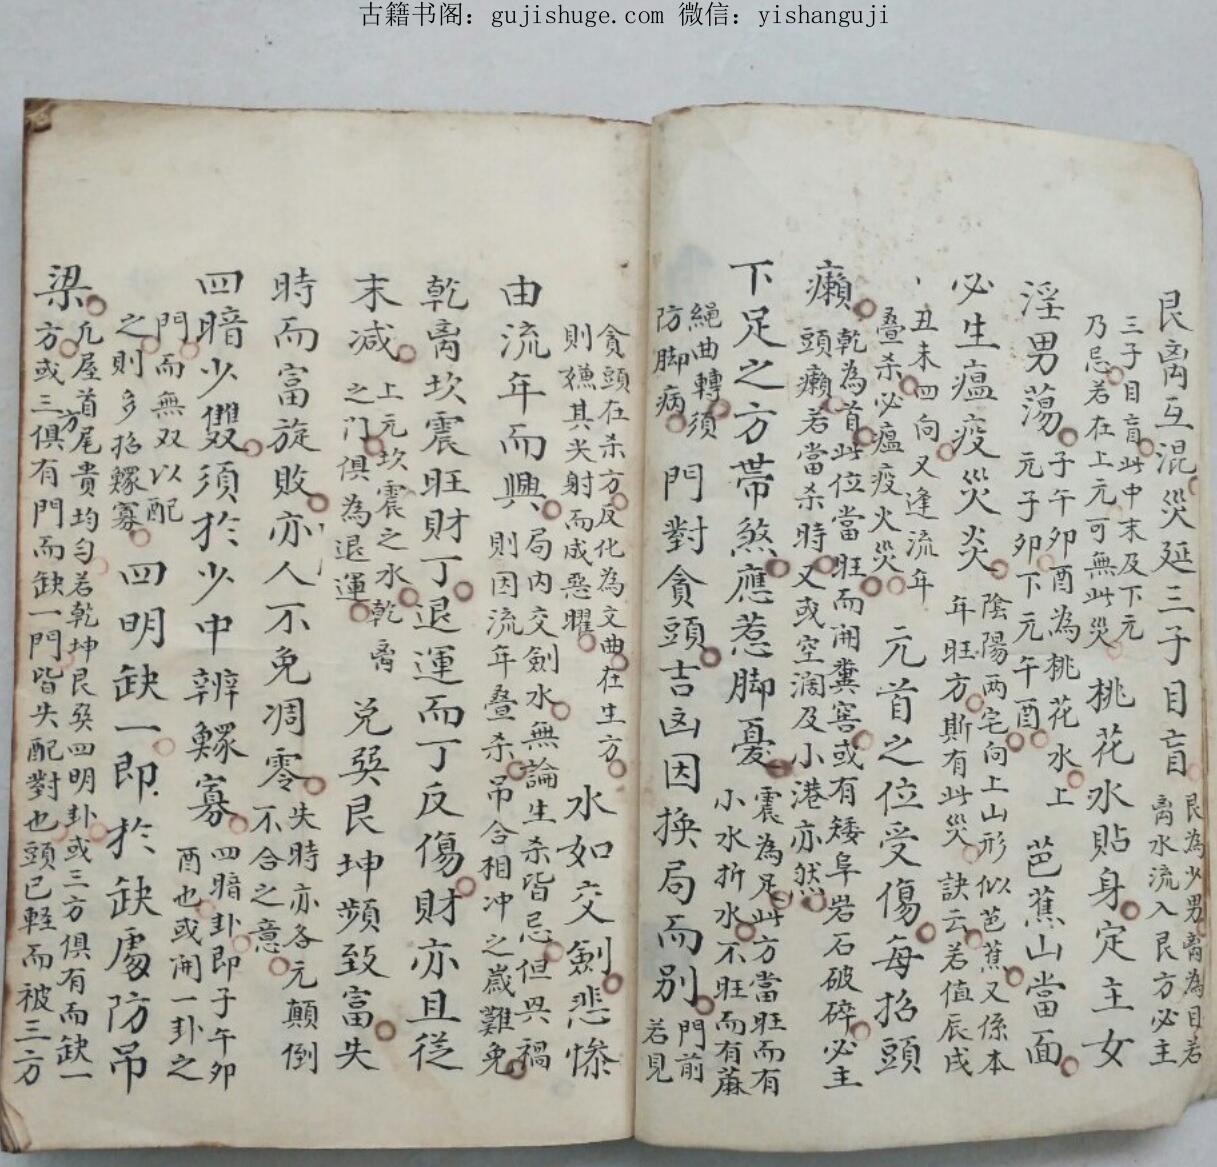 古籍书阁：gujishuge.com 微信：yishanguji
艮离互混災延三子目盲 艮為少男离為目若
离水流入艮方必主
三子目盲此中末及下元
乃忌若在上元可無此災 桃花水貼身定主女
淫男蕩 子午卯酉為桃花水上
元子卯下元午酉 芭蕉山當面
必生瘟疫災炎 陰陽两宅向上山形似芭蕉又係本
年旺方斯有此災 訣云若值辰戌
丑未四向又逢流年
叠杀必瘟疫火災 元首之位受傷每招頭
癩 乾為首此位當旺而開糞窖或有矮阜岩石破碎必主
頭癩若當杀時又或空濶及小港亦然
下足之方帶煞應惹脚憂 震為足此方當旺而有
小水折水不旺而有蔴
繩曲轉須
防脚病 門對貪頭吉凶因換局而别 門前
若見
貪頭在杀方反化為文曲在生方
則嫌其尖射而成惡曜 水如交劍悲慘
由流年而興 局内交劍水無論生杀皆忌但興禍
則因流年叠杀吊合相冲之歲難免
乾离坎震旺財丁退運而丁反傷財亦且從
末减 上元坎震之水乾离
之门俱為退運 兑巽艮坤頻致富失
時而富旋敗亦人不免凋零 失時亦各元顛倒
不合之意
四暗少雙須於少中辨鰥寡 四暗卦即子午卯
酉也或開一卦之
門而無双以配
之則多招鰥寡 四明缺一即於缺處防吊
梁 凢屋首尾貴均匀若乾坤艮巽四明卦或三方俱有而缺一
方或三方俱有門而缺一門皆失配對也頭已輕而被三方